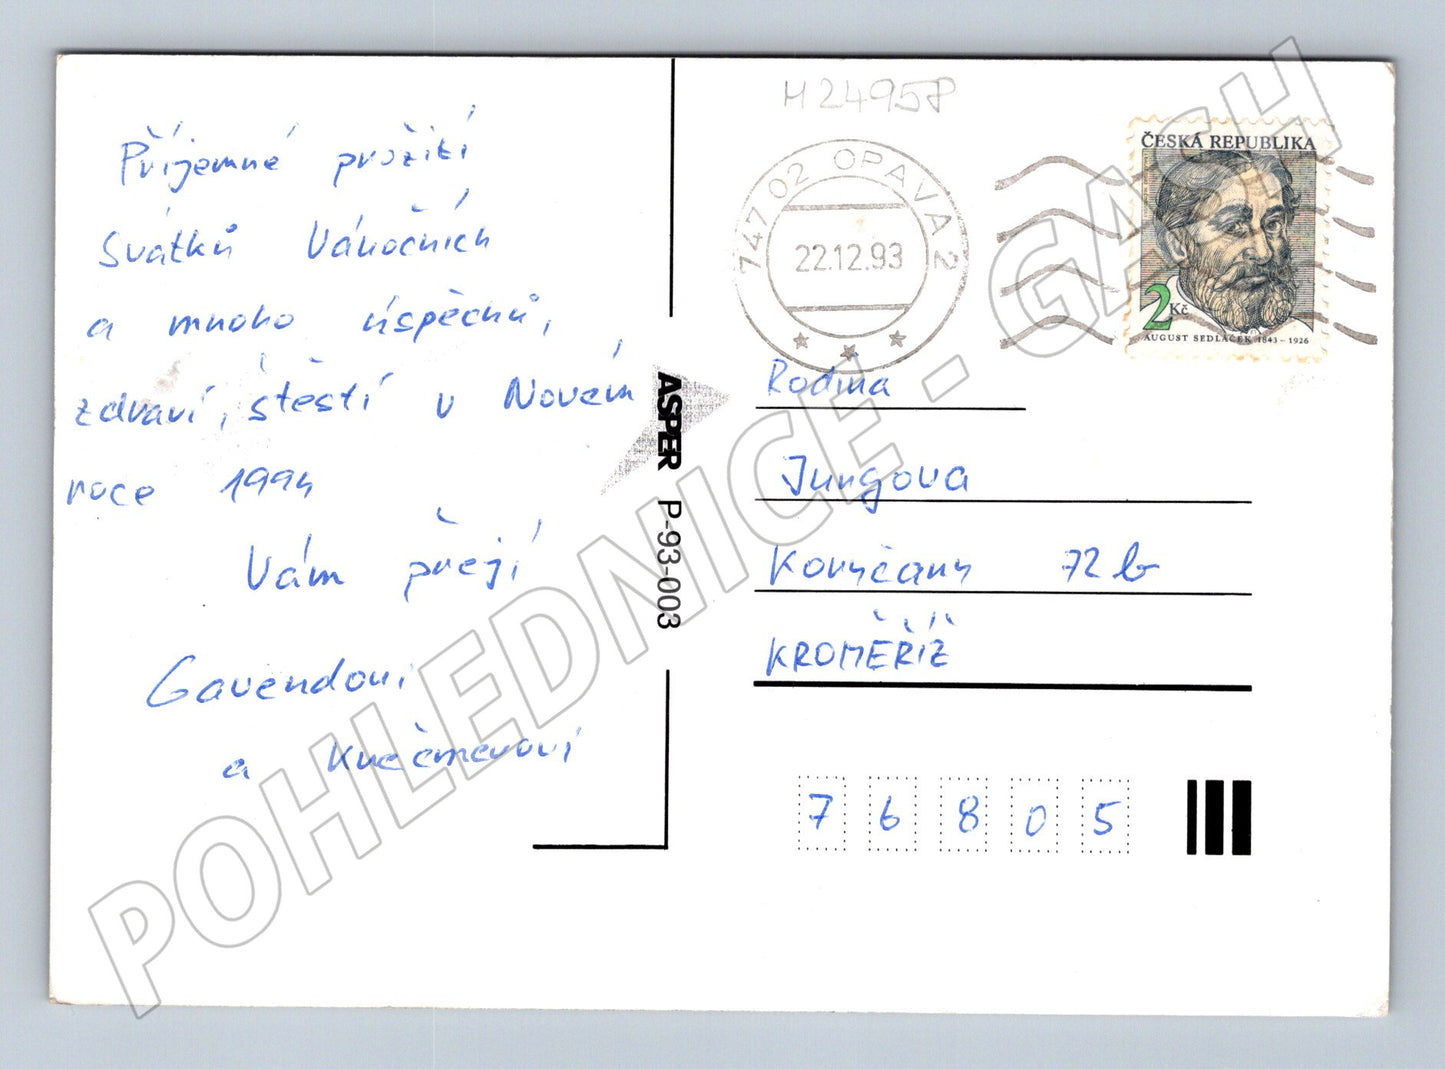 Příjemné prožití
Svátků Vánočních
a mnoho úspěchů,
zdraví, štěstí v Novém
roce 1994
Vám přejí
Gavendovi
a Krečmerovi
M24958
747 02 OPAVA 2
22.12.93
ČESKÁ REPUBLIKA
2 Kč
AUGUST SEDLÁČEK 1843 - 1926
ASPER P-93-003
Rodina
Jungova
Koryčany 72 b
KROMĚŘÍŽ
7 6 8 0 5
POHLEDNICE - GASH